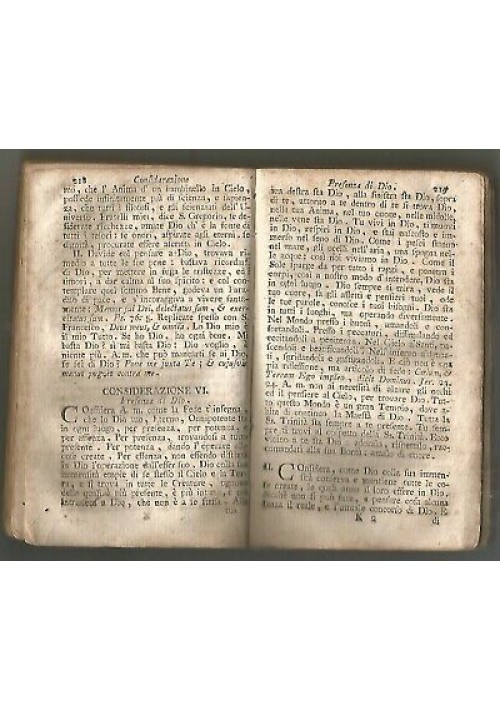 218 Considerazione
che l' Anima d' un bambinello in Cielo,
possiede infinitamente più di scienza, e sapien-
za, che tutti i filosofi, e gli scienziati dell' U-
niverso. Fratelli miei, dice S. Gregorio, se de-
siderate ricchezze, amate Dio ch' è la fonte di
tutti i tesori; se onori, aspirate agli eterni, se
dignità, procurate essere ascritti in Cielo.
II. Davide col pensare a Dio, trovava ri-
medio a tutte le sue pene: bastava ricordarsi
di Dio, per mettere in fuga le tristezze, ed i
timori, a dar calma al suo spirito: e col con-
templare quel sommo Bene, godeva un Para-
diso di pace, e s' incoraggiva a vivere santa-
mente: Memor fui Dei, delectatus sum, & exer-
citatus sum. Ps. 76. Replicate spesso con S.
Francesco, Deus meus, & omnia. Lo Dio mio è
il mio Tutto. Se ho Dio, ho ogni bene. Mi
basta Dio? sì mi basta Dio: Dio voglio, e
niente più. A. m. che può mancarti se ai Dio,
se sei di Dio? Pone me juxta Te; & cujusvis
manus pugnet contra me.
CONSIDERAZIONE VI.
Presenza di Dio.
COnsidera A. m. come la Fede t'insegna,
che lo Dio tuo, Eterno, Onnipotente sta
in ogni luogo, per presenza, per potenza, e
per essenza. Per presenza, trovandosi a tutto
presente. Per potenza, dando l' operare alle
cose create. Per essenza non essendo distinta
in Dio l'operazione dall'esser suo. Dio colla sua
immensità empie di se stesso il Cielo e la Ter-
ra, e si trova in tutte le Creature, ognuna
delle quali è più presente, è più intimo, e più
intrinseco a Dio, che non è a se stessa. Alla
tua
Presenza di Dio. 219
tua destra sta Dio, alla sinistra sta Dio, sopra
di te, attorno a te dentro di te si trova Dio,
nella tua Anima, nel tuo cuore, nelle midolle,
nelle vene sta Dio. Tu vivi in Dio, ti muovi
in Dio, respiri in Dio, e stai nascosto e im-
merso nel seno di Dio. Come i pesci stanno
nel mare, gli uccelli nell'aria, una spogna nel-
le acque: così noi viviamo in Dio. Come il
Sole sparge da per tutto i raggi, e penetra i
corpi, così a nostro modo d'intendere, Dio sta
in ogni luogo. Dio sempre ti mira, vede il
tuo cuore, sa gli affetti e pensieri tuoi, ode
le tue parole, conosce i tuoi bisogni. Dio sta
in tutti i luoghi, ma operando diversamente.
Nel Mondo presso i buoni, amandoli e con-
fortandoli. Presso i peccatori, dissimulando ed
eccitandoli a penitenza. Nel Cielo alletta, pa-
scendoli e beatificandoli? Nell' inferno
ti, sgridandoli e gastigandoli. E ciò non è
pia riflessione, ma articolo di fede: Cœlum, &
Terram Ego impleo, dicit Dominus. Jer. 23.
24. A. m. non ai necessità di alzare gli occhi
ed il pensiere al Cielo, per trovare Dio. Tut-
to questo Mondo è un gran Tempio, dove a-
bita di continuo la Maestà di Dio. Tutta la
Ss. Trinità sta sempre a te presente. Tu sem-
pre ti trovi al cospetto della Ss. Trinità. Ecco
vicino a te sta Dio, adoralo, ringrazialo, rac-
comandati alla sua Bontà: amalo di cuore.
II. COnsidera, come Dio colla sua immen-
sità conserva e mantiene tutte le co-
se create, le quali anno il loro essere in Dio.
non si può fare, e pensare cosa alcuna
senza il reale, e attuale concorso di Dio. E
K 2 di